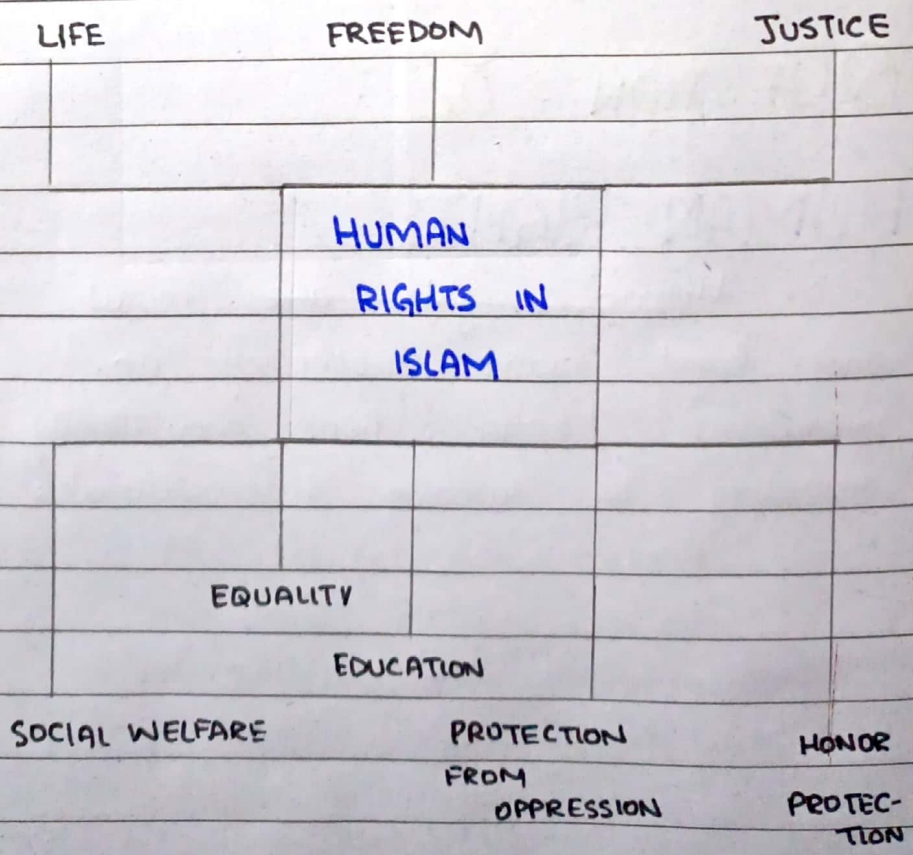 LIFE FREEDOM JUSTICE
HUMAN
RIGHTS IN
ISLAM
EQUALITY
EDUCATION
SOCIAL WELFARE
PROTECTION
FROM
OPPRESSION
HONOR
PROTEC-
TION